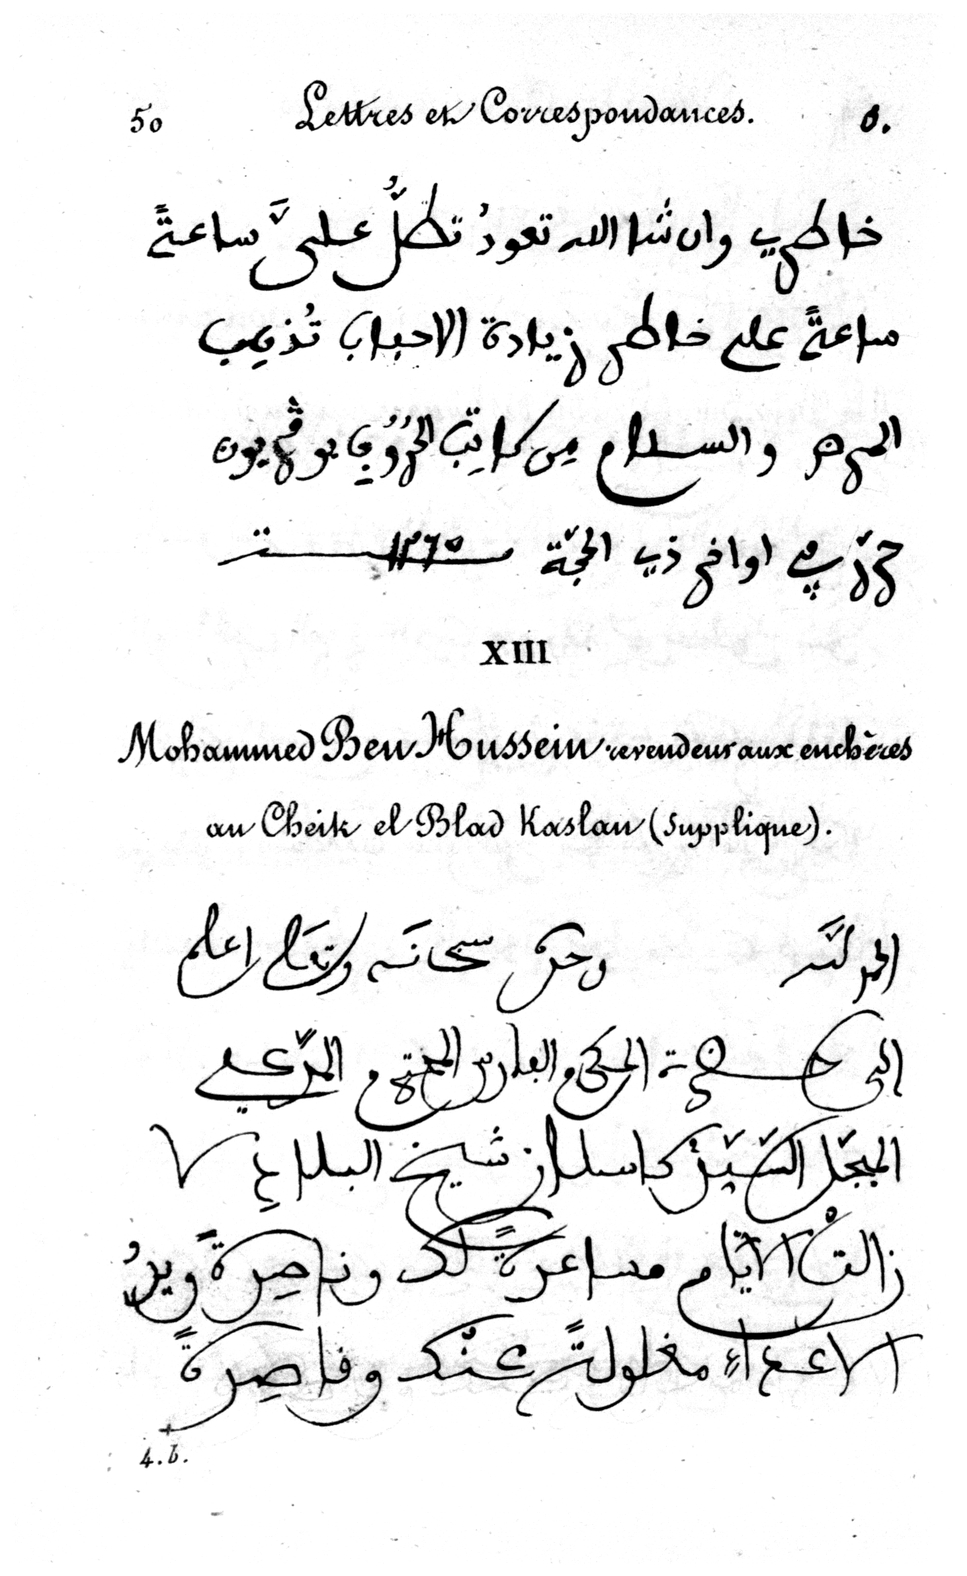 50 Lettres et Correspondances. 6.
خاطري وان شا الله تعودُ تطلُّ عليَّ ساعةً
ساعةً على خاطر زيادة الاحباب تُذهِب
المرض والسلام مِن كاتِبَ الحُرُوفِ
في اواخر ذي الحجّة سنة ١٢٦٥
XIII
Mohammed Ben Hussein revendeur aux enchères
au Cheik el Blad Kaslan (Supplique).
الحمد لله سبحانه وتعلى اعلم
الى حضرة المحترم المرعي
المبجّل السّيّد كاسلان شيخ البلاد لا
زالتْ الايّام مساعدةً لك وناصِرةً ويدُ
الاعداءِ مغلولةً عنْك وقاصِرةً
4.b.